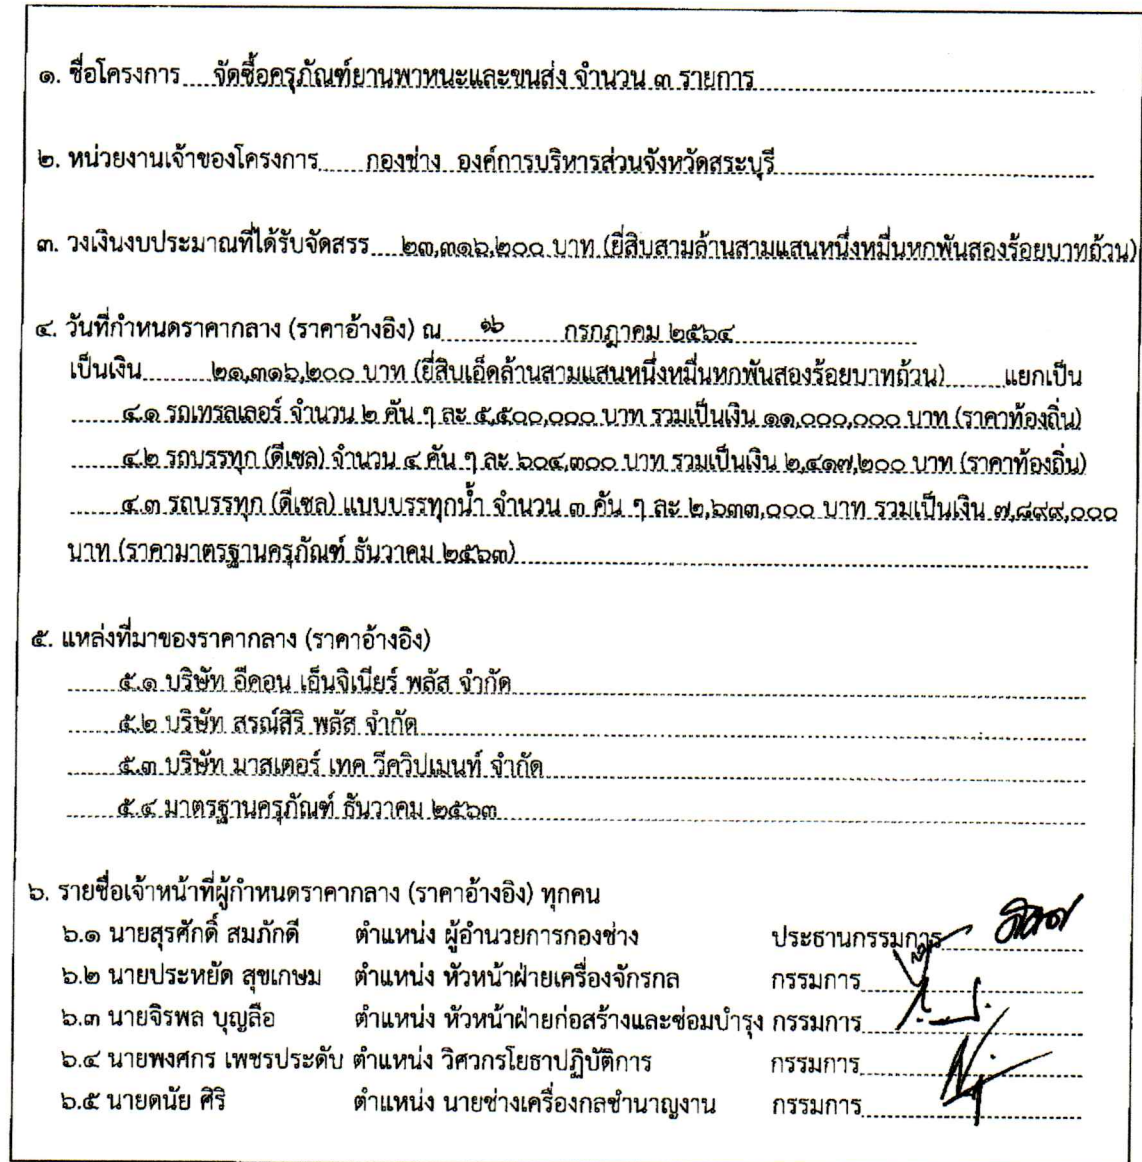 ๑. ชื่อโครงการ จัดซื้อครุภัณฑ์ยานพาหนะและขนส่ง จำนวน ๓ รายการ
๒. หน่วยงานเจ้าของโครงการ กองช่าง องค์การบริหารส่วนจังหวัดสระบุรี
๓. วงเงินงบประมาณที่ได้รับจัดสรร ๒๓,๓๑๖,๒๐๐ บาท (ยี่สิบสามล้านสามแสนหนึ่งหมื่นหกพันสองร้อยบาทถ้วน)
๔. วันที่กำหนดราคากลาง (ราคาอ้างอิง) ณ ๑๖ กรกฎาคม ๒๕๖๔
เป็นเงิน ๒๑,๓๑๖,๒๐๐ บาท (ยี่สิบเอ็ดล้านสามแสนหนึ่งหมื่นหกพันสองร้อยบาทถ้วน) แยกเป็น
๔.๑ รถเทรลเลอร์ จำนวน ๒ คัน ๆ ละ ๕,๕๐๐,๐๐๐ บาท รวมเป็นเงิน ๑๑,๐๐๐,๐๐๐ บาท (ราคาท้องถิ่น)
๔.๒ รถบรรทุก (ดีเซล) จำนวน ๔ คัน ๆ ละ ๖๐๔,๓๐๐ บาท รวมเป็นเงิน ๒,๔๑๗,๒๐๐ บาท (ราคาท้องถิ่น)
๔.๓ รถบรรทุก (ดีเซล) แบบบรรทุกน้ำ จำนวน ๓ คัน ๆ ละ ๒,๖๓๓,๐๐๐ บาท รวมเป็นเงิน ๗,๘๙๙,๐๐๐
บาท (ราคามาตรฐานครุภัณฑ์ ธันวาคม ๒๕๖๓)
๕. แหล่งที่มาของราคากลาง (ราคาอ้างอิง)
๕.๑ บริษัท อีคอน เอ็นจิเนียร์ พลัส จำกัด
๕.๒ บริษัท สรณ์สิริ พลัส จำกัด
๕.๓ บริษัท มาสเตอร์ เทค วีควิปเมนท์ จำกัด
๕.๔ มาตรฐานครุภัณฑ์ ธันวาคม ๒๕๖๓
๖. รายชื่อเจ้าหน้าที่ผู้กำหนดราคากลาง (ราคาอ้างอิง) ทุกคน
๖.๑ นายสุรศักดิ์ สมภักดี ตำแหน่ง ผู้อำนวยการกองช่าง ประธานกรรมการ
๖.๒ นายประหยัด สุขเกษม ตำแหน่ง หัวหน้าฝ่ายเครื่องจักรกล กรรมการ
๖.๓ นายจิรพล บุญลือ ตำแหน่ง หัวหน้าฝ่ายก่อสร้างและซ่อมบำรุง กรรมการ
๖.๔ นายพงศกร เพชรประดับ ตำแหน่ง วิศวกรโยธาปฏิบัติการ กรรมการ
๖.๕ นายดนัย ศิริ ตำแหน่ง นายช่างเครื่องกลชำนาญงาน กรรมการ